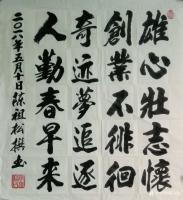 雄心壯志懷
創業不徘徊
奇迹夢追逐
人勤春早来
二〇一八年五月十日陈祖松撰书